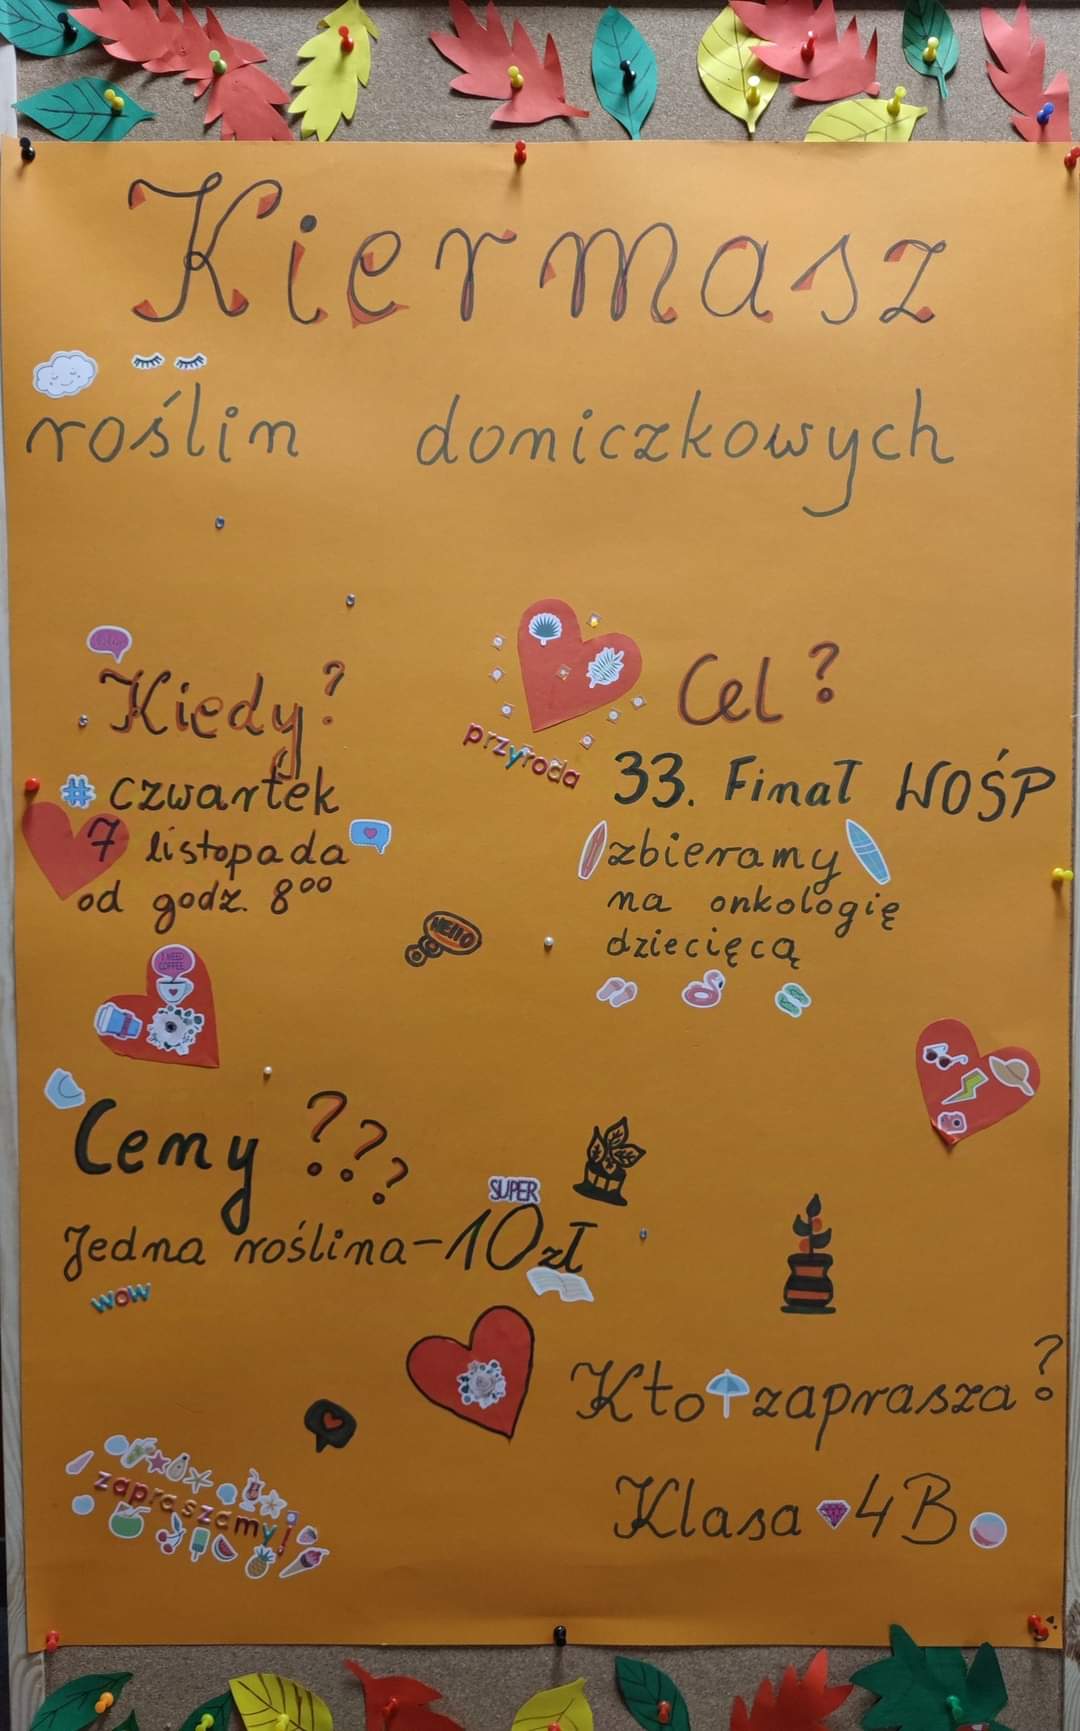 Kiermasz
roślin doniczkowych
Kiedy?
# czwartek
7 listopada
od godz. 8⁰⁰
przyroda
Cel?
33. Finał WOŚP
zbieramy
na onkologię
dziecięcą
HELLO
I NEED
COFFEE
Ceny ???
SUPER
Jedna roślina - 10 zł
WOW
Kto zaprasza?
Klasa 4B
zapraszamy!